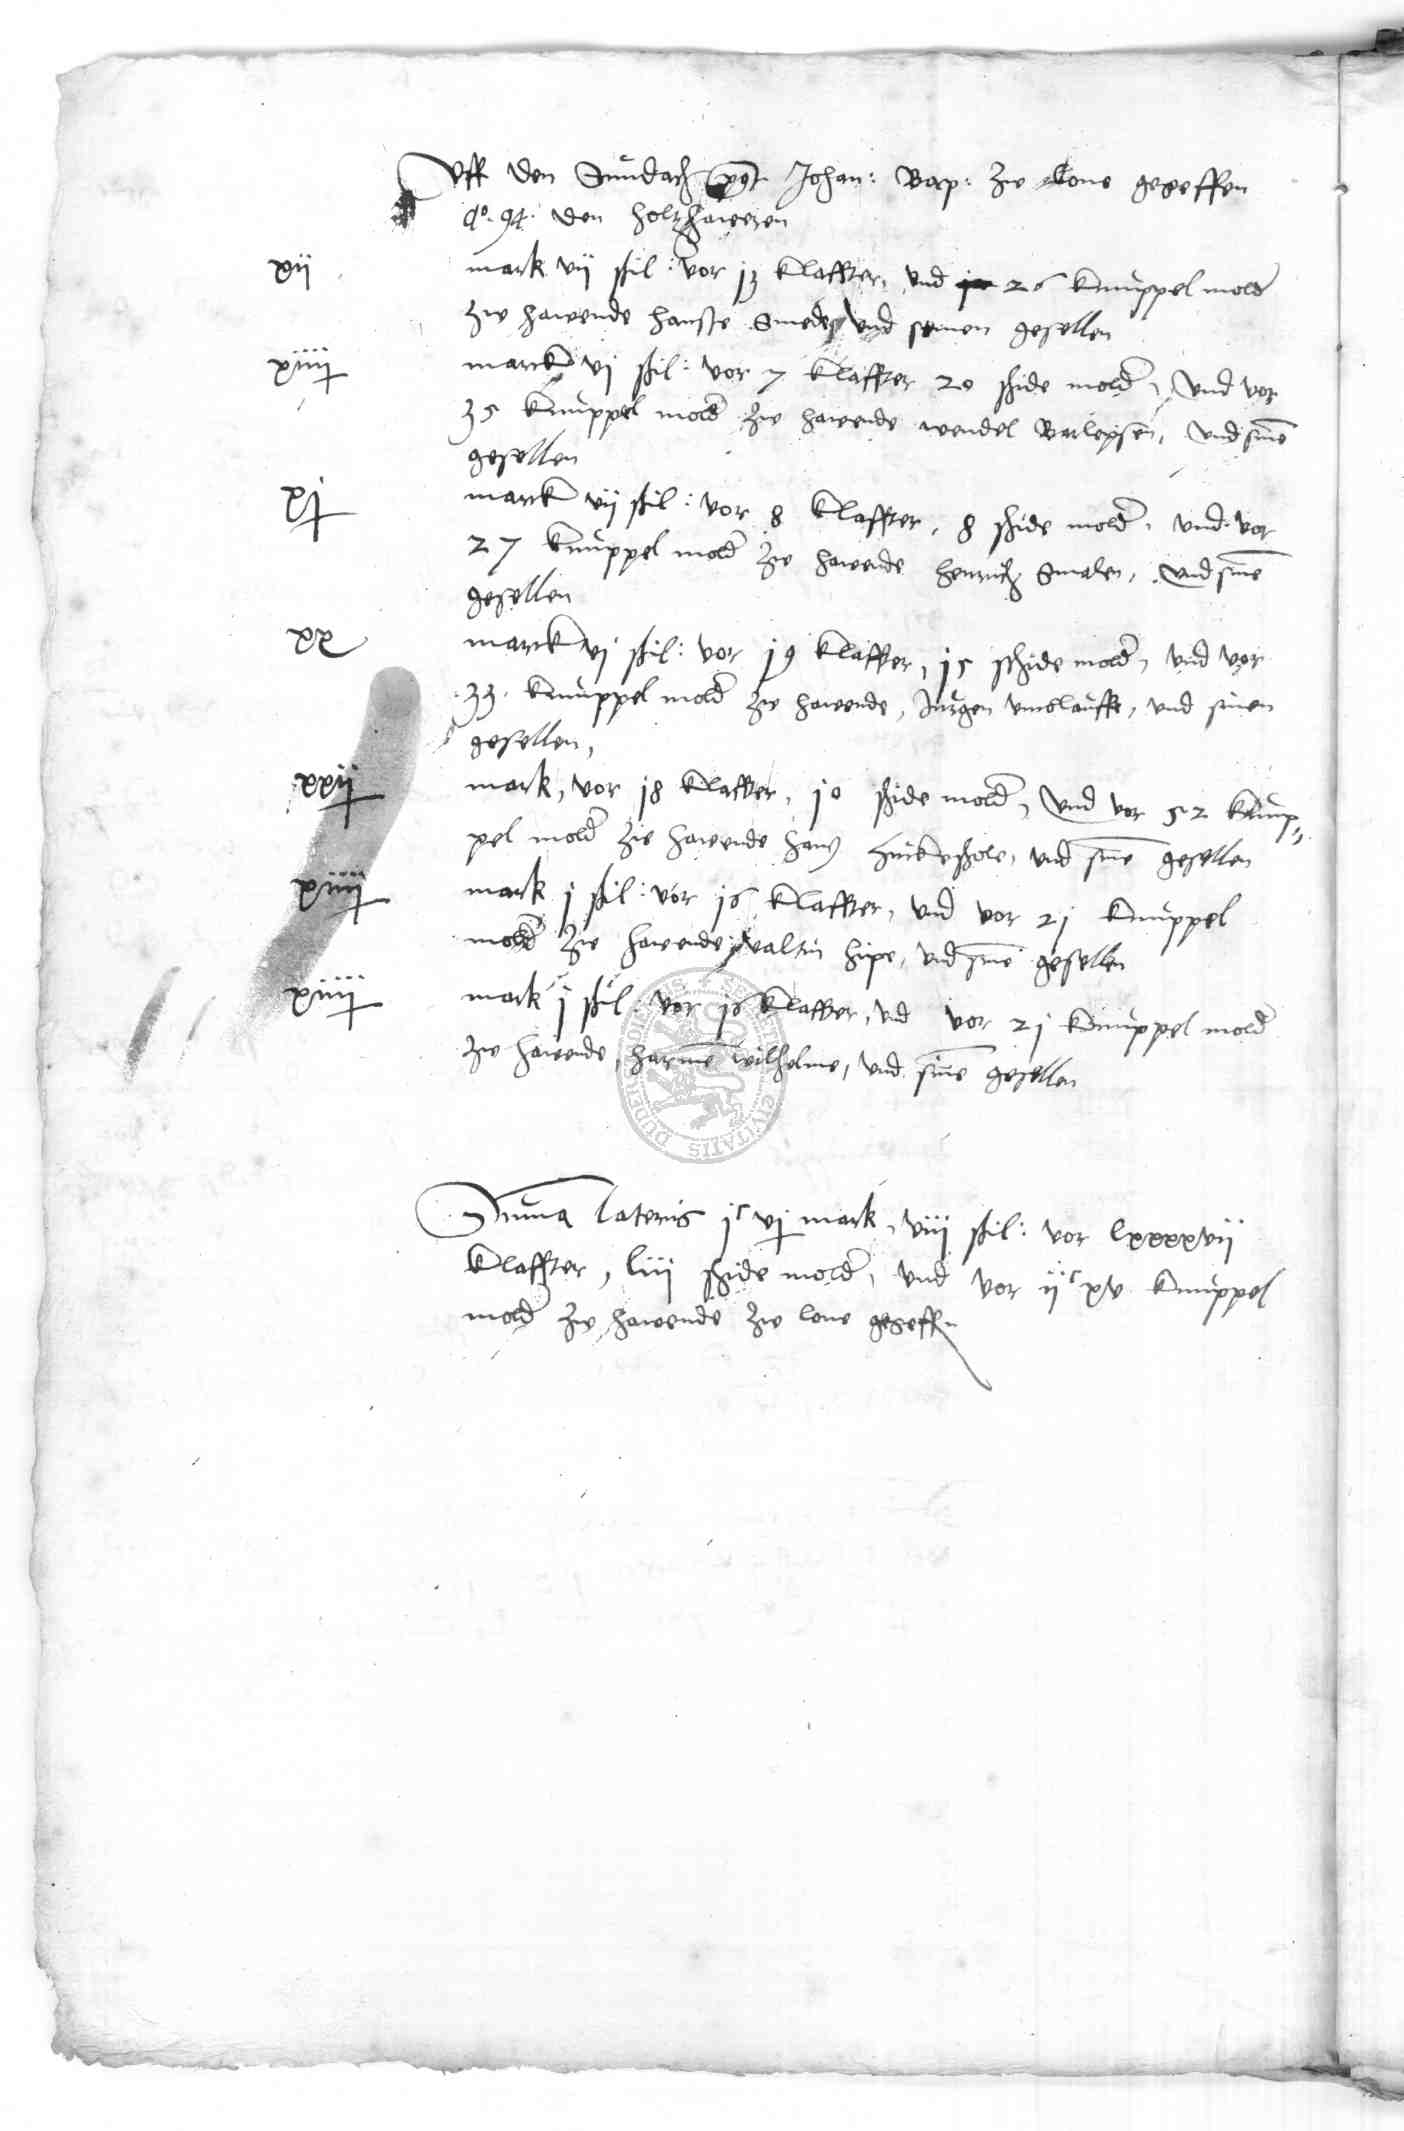 Uff den Sundach post Johan: Bap: zw lone gegeffen
Ao. 94. den holtzhaweren
xii mark vii shil: vor 13 klaffter, und 26 knuppel mold
zw hawende hanse Smedes und seinen gesellen
xiiii marck vj shil: vor 7 klaffter 20 shide mold, und vor
35 knuppel mold zw hawende wendel Barlepsen, und sine
gesellen
xj marck vii shil: vor 8 klaffter, 8 shide mold, und vor
27 knuppel mold zw hawende henrich Smalen, und sine
gesellen
xx marck vj shil: vor 19 klaffter, 15 schide mold, und vor
33. knuppel mold zw hawende, Jurgen umolauffe, und sinen
gesellen,
xxii mark, vor 18 klaffter, 10 shide mold, und vor 52 knup„
pel mold zw hawende hans und sine gesellen
xiiii mark j shil: vor 16 klaffter, und vor 21 knuppel
mold zw hawende, valtin hipe, und sine gesellen
xiiii mark j shil: vor 16 klaffter, und vor 21 knuppel mold
zw hawende, harme wilhelme, und sine gesellen
Summa lateris jc vj mark, viii shil: vor lxxxxvii
klaffter, liii shide mold, und vor iic xv knuppel
mold zw hawende zw lone gegeffn